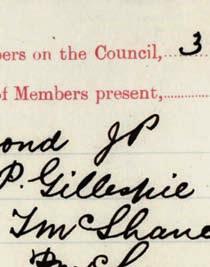 bers on the Council, 3
of Members present,
ond JP
P. Gillespie
TMcShane